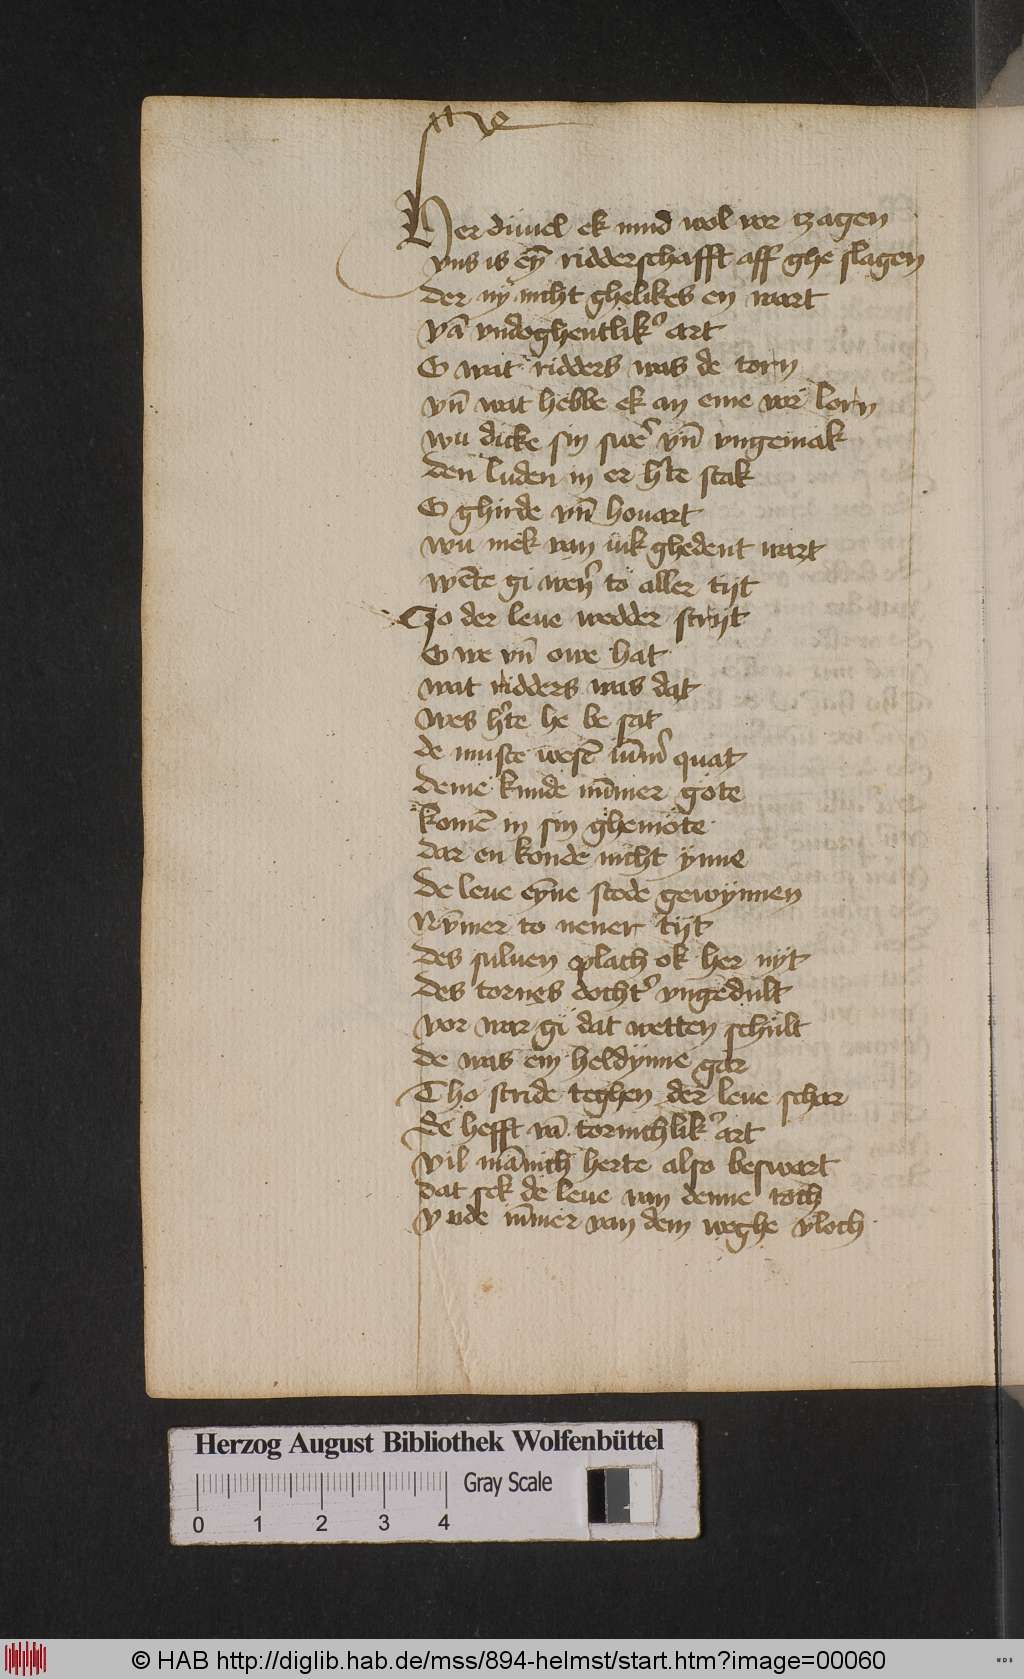 Her duuel ek mud wol vor tzagen
vns is eyn̄ ridderschafft aff ghe slagen
der ny nicht ghelikes en wart
vā vndoghentlikˀ art
O wat ridders was de torn
vn̄ wat hebbe ek an eme vor lorn
wu dicke sin swerˀ vn̄ vngemak
den luden in er hˀte stak
O ghirde vn̄ houart
wu mek van iuk ghedent wart
wēte gi werˀ to aller tijt
Jo der leue wedder strijt
O we vn̄ owe hat
wat ridders was dat
wes hˀte he be sat
de muste wesē ūmˀ quat
deme kunde nūmer gote
komē in sin ghemote
dar en konde nicht ynne
de leue eyne stede gewynnen
Nȳmer to nener tijt
des suluen plach ok her nijt
des tornes dochtˀ vngedult
vor war gi dat wetten schult
de was ein heldynne gar
Tho stride teghen der leue schar
de hefft vā tornichlikˀ art
vil mānich herte also beswart
dat sek de leue van denne toch
vnde ūmer van dem weghe vloch
Herzog August Bibliothek Wolfenbüttel
Gray Scale
0 1 2 3 4
© HAB http://diglib.hab.de/mss/894-helmst/start.htm?image=00060